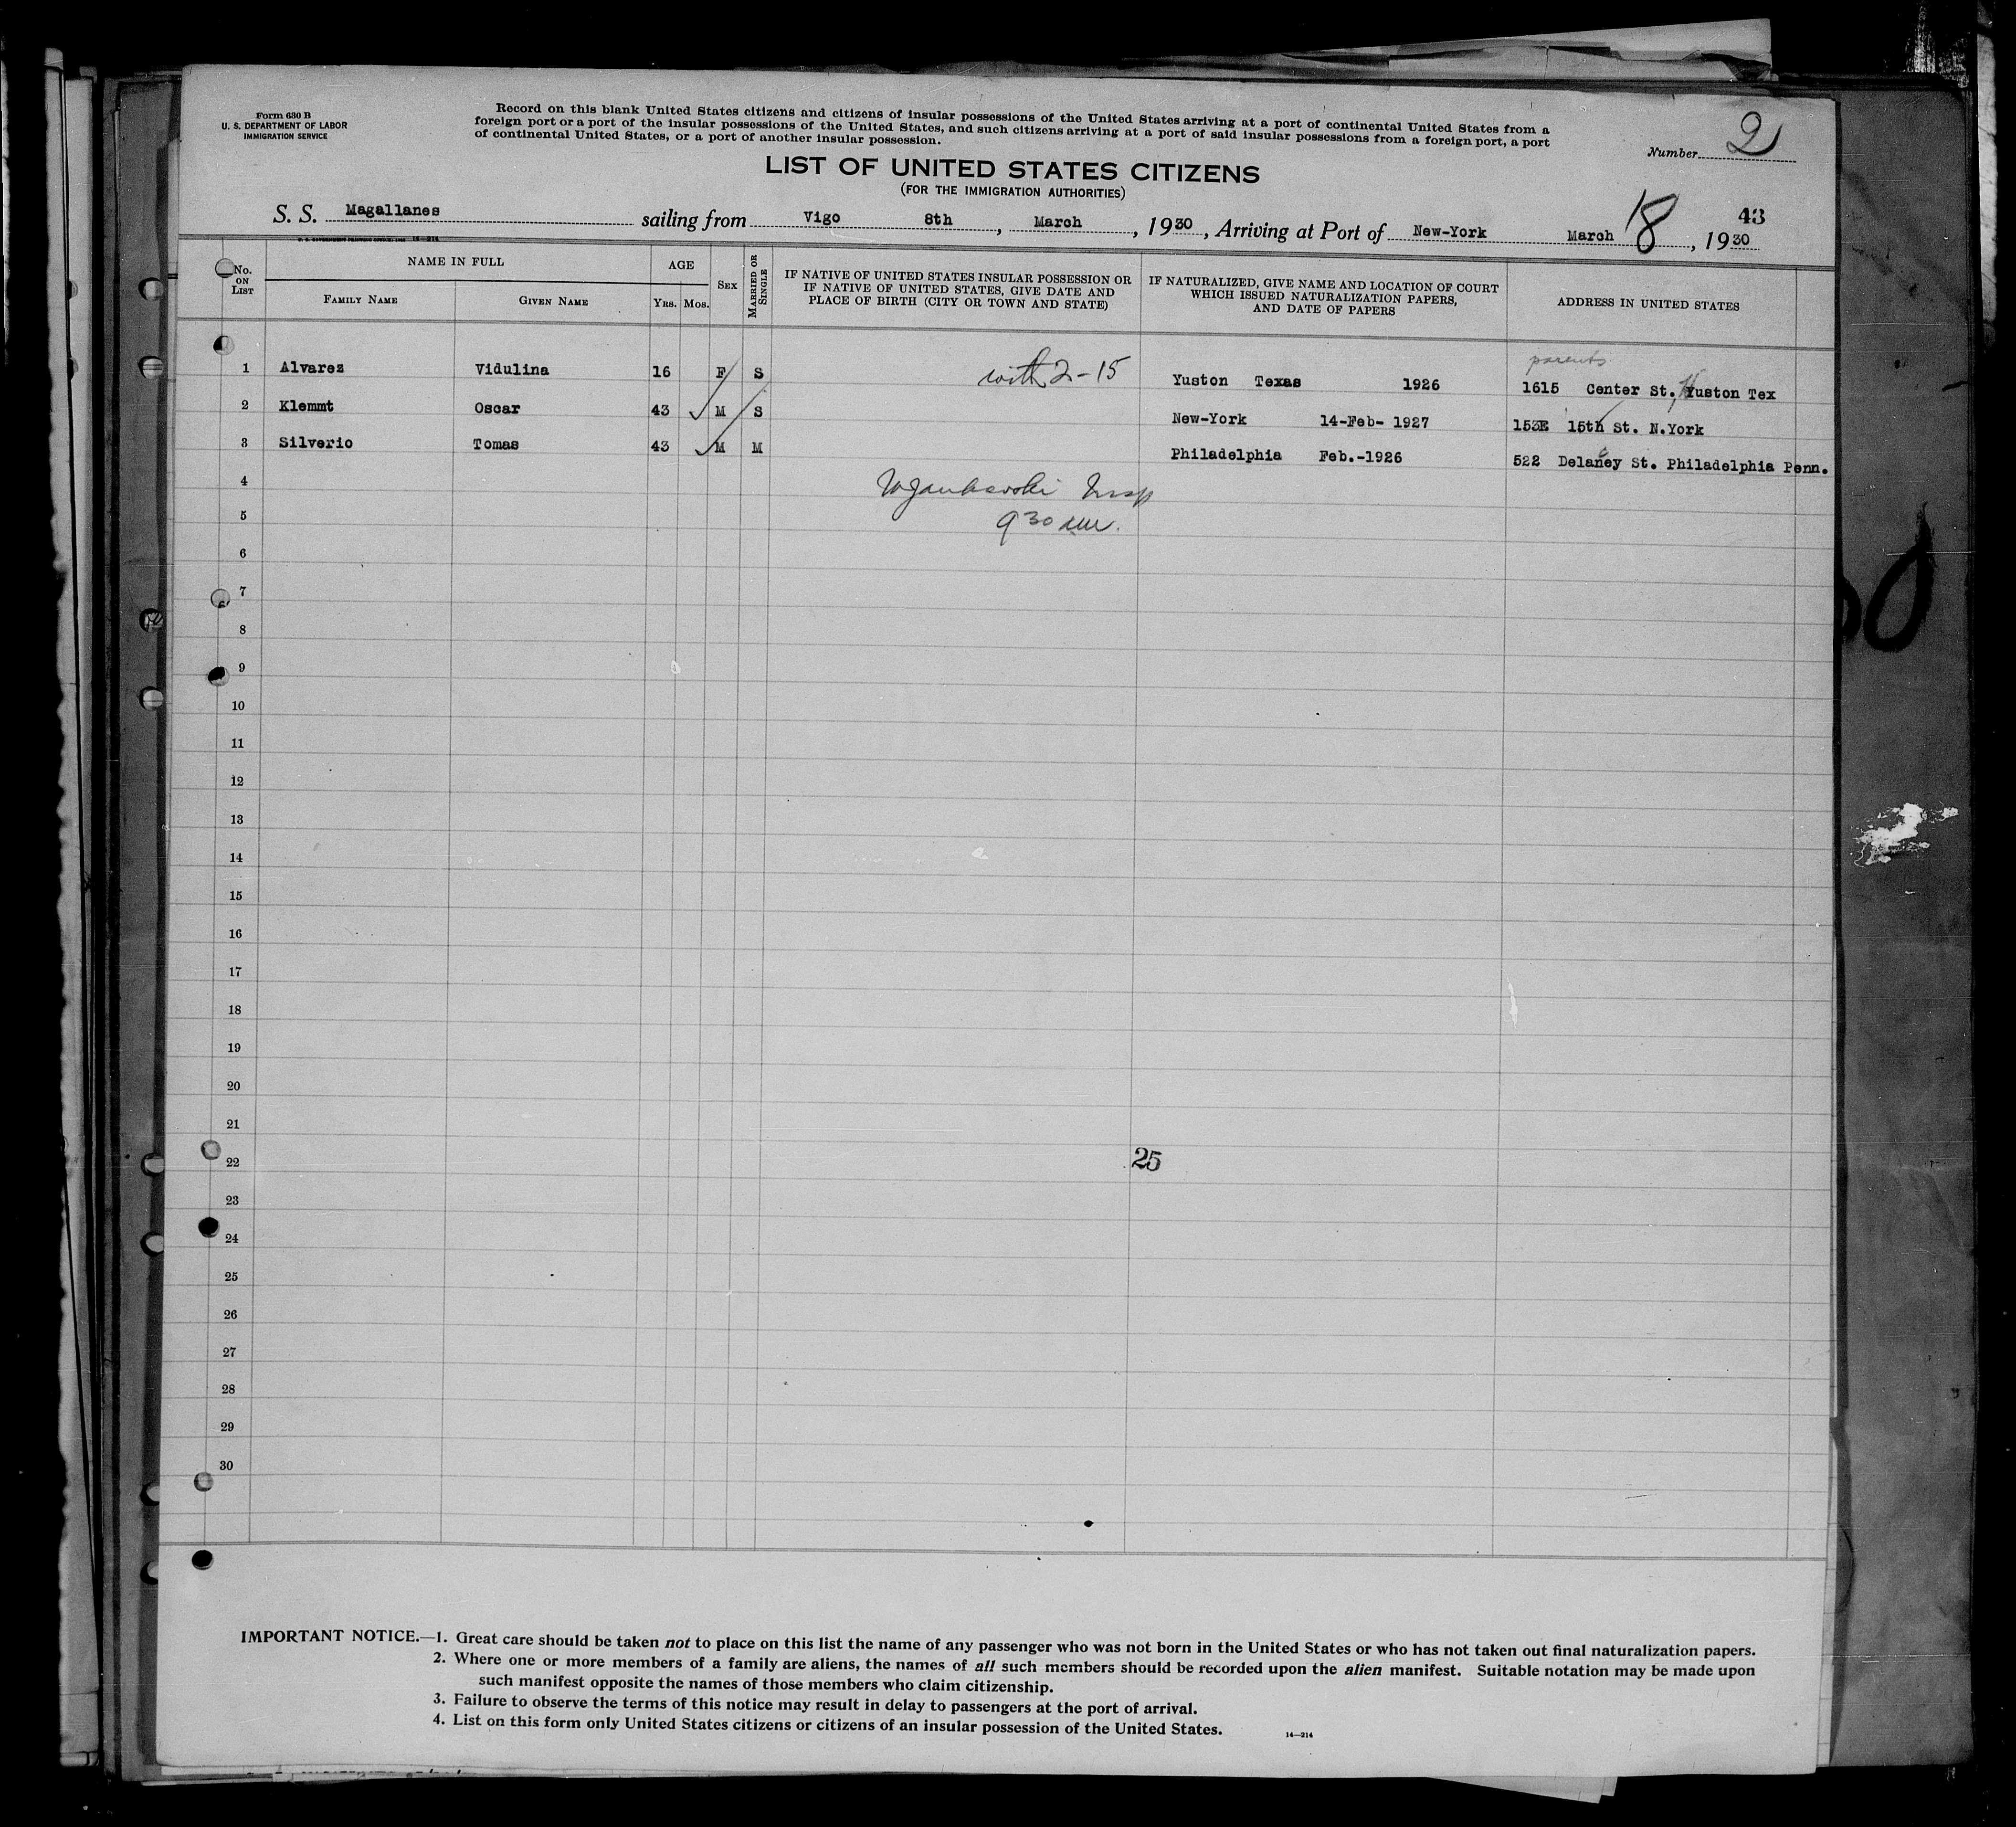 Form 630 B
U. S. DEPARTMENT OF LABOR
IMMIGRATION SERVICE
Record on this blank United States citizens and citizens of insular possessions of the United States arriving at a port of continental United States from a
foreign port or a port of the insular possessions of the United States, and such citizens arriving at a port of said insular possessions from a foreign port, a port
of continental United States, or a port of another insular possession.
Number 2
LIST OF UNITED STATES CITIZENS
(FOR THE IMMIGRATION AUTHORITIES)
43
S. S. Magallanes sailing from Vigo 8th, March, 1930, Arriving at Port of New-York March 18, 1930
No. ON LIST
NAME IN FULL
FAMILY NAME GIVEN NAME
AGE
YRS. MOS.
SEX
MARRIED OR SINGLE
IF NATIVE OF UNITED STATES INSULAR POSSESSION OR
IF NATIVE OF UNITED STATES, GIVE DATE AND
PLACE OF BIRTH (CITY OR TOWN AND STATE)
IF NATURALIZED, GIVE NAME AND LOCATION OF COURT
WHICH ISSUED NATURALIZATION PAPERS,
AND DATE OF PAPERS
ADDRESS IN UNITED STATES
parents
1 Alvarez Vidulina 16 F S with 2-15 Yuston Texas 1926 1615 Center St., Yuston Tex
2 Klemmt Oscar 43 M S New-York 14-Feb- 1927 153E 15th St. N.York
3 Silverio Tomas 43 M M Philadelphia Feb.-1926 522 Delaney St. Philadelphia Penn.
4 Insp
5 9 30 am.
6
7
8
9
10
11
12
13
14
15
16
17
18
19
20
21
22 25
23
24
25
26
27
28
29
30
IMPORTANT NOTICE.—1. Great care should be taken not to place on this list the name of any passenger who was not born in the United States or who has not taken out final naturalization papers.
2. Where one or more members of a family are aliens, the names of all such members should be recorded upon the alien manifest. Suitable notation may be made upon
such manifest opposite the names of those members who claim citizenship.
3. Failure to observe the terms of this notice may result in delay to passengers at the port of arrival.
4. List on this form only United States citizens or citizens of an insular possession of the United States.
14—214